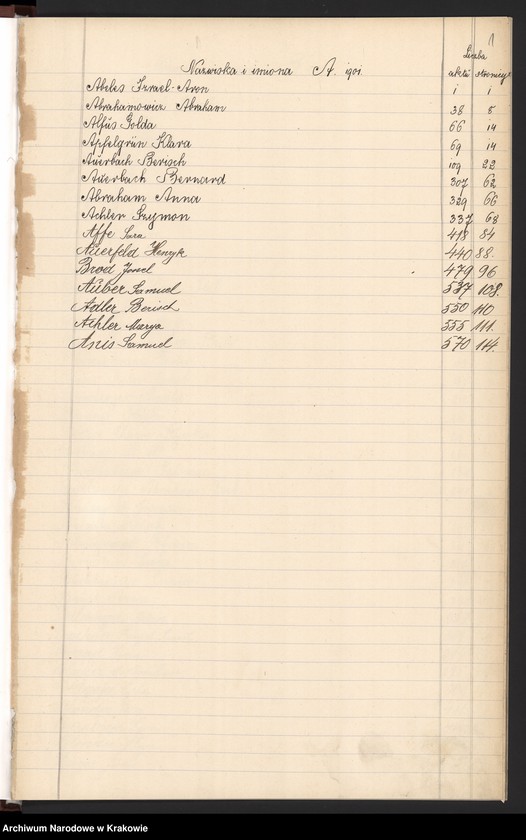 1
Liczba
Nazwiska i imiona A. 1901. aktu stronicy
Abeles Izrael-Aron 1 1
Abrahamowicz Abraham 38 8
Alfüs Golda 66 14
Apfelgrün Klara 69 14
Auerbach Berisch 109 22
Auerbach Bernard 307 62
Abraham Anna 329 66
Achler Szymon 337 68
Affe Sara 418 84
Auerfeld Henryk 440 88.
Brod Josel 479 96
Auber Samuel 537 108.
Adler Berisch 550 110
Achler Marya 555 111.
Anis Samuel 570 114.
Archiwum Narodowe w Krakowie